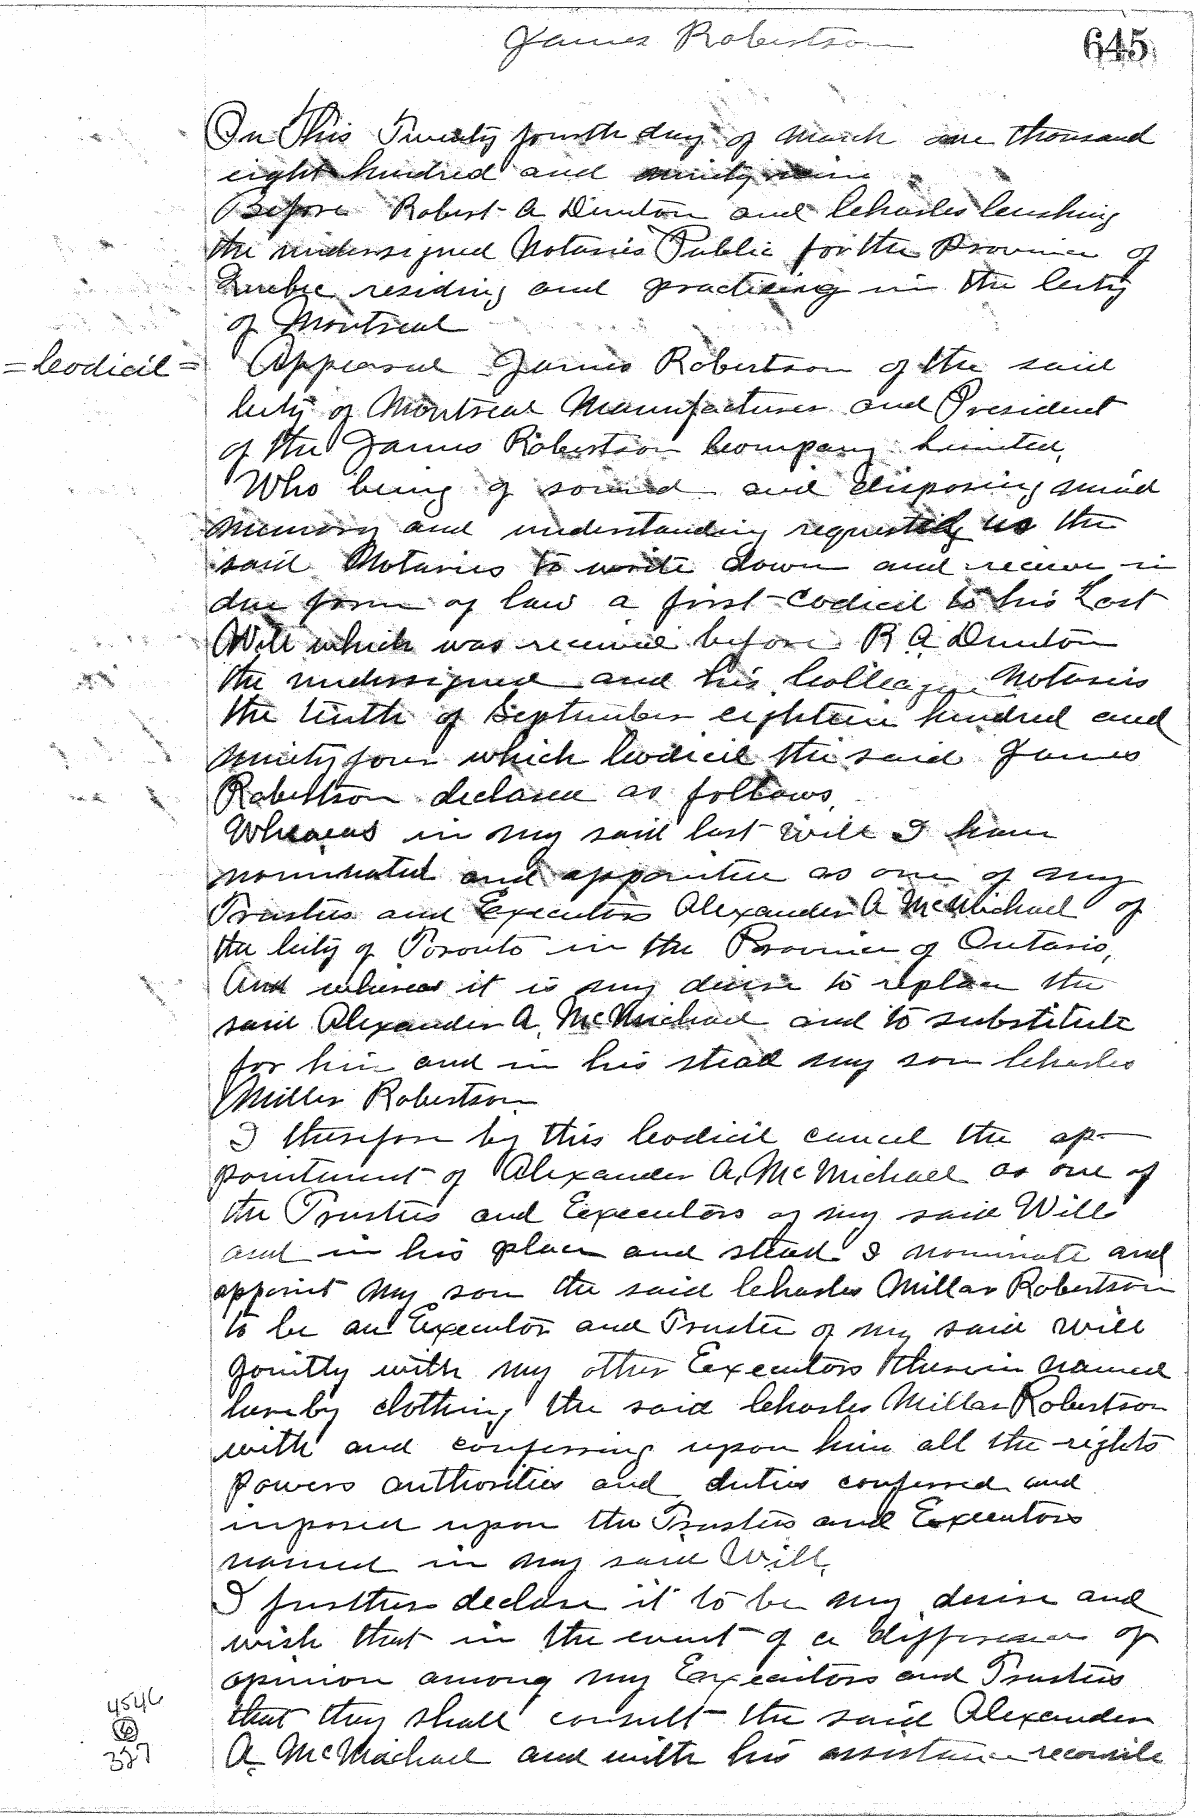 James Robertson
645
On this Twenty fourth day of March one thousand
eight hundred and ninety nine
Before Robert A Dunton and Charles Cushing
the undersigned Notaries Public for the Province of
Quebec residing and practising in the City
of Montreal
= Codicil =
Appeared James Robertson of the said
City of Montreal Manufacturer and President
of the James Robertson Company Limited,
Who being of sound and disposing mind
memory and understanding requested us the
said Notaries to write down and receive in
due form of law a first Codicil to his Last
Will which was received before R A Dunton
the undersigned and his Colleague Notaries
the tenth of September eighteen hundred and
ninety four which Codicil the said James
Robertson declared as follows,
Whereas in my said last Will I have
nominated and appointed as one of my
Trustees and Executors Alexander A McMichael of
the City of Toronto in the Province of Ontario,
And whereas it is my desire to replace the
said Alexander A. McMichael and to substitute
for him and in his stead my son Charles
Millar Robertson
I therefore by this Codicil cancel the ap-
pointment of Alexander A. McMichael as one of
the Trustees and Executors of my said Will
and in his place and stead I nominate and
appoint my son the said Charles Millar Robertson
to be an Executor and Trustee of my said Will
jointly with my other Executors therein named
hereby clothing the said Charles Millar Robertson
with and conferring upon him all the rights
powers authorities and duties conferred and
imposed upon the Trustees and Executors
named in my said Will,
I further declare it to be my desire and
wish that in the event of a difference of
opinion among my Executors and Trustees
that they shall consult the said Alexander
A. McMichael and with his assistance reconcile
4546
6
327